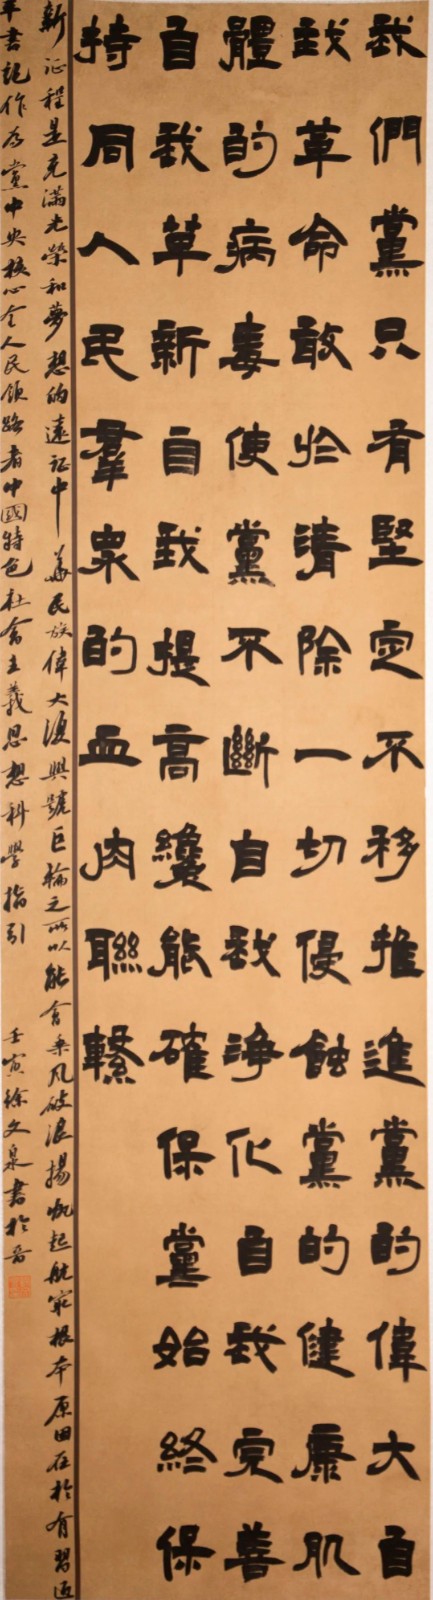 我們黨只有堅定不移推進黨的偉大自
我革命敢於清除一切侵蝕黨的健康肌
體的病毒使黨不斷自我淨化自我完善
自我革新自我提高纔能確保黨始終保
持同人民羣眾的血肉聯繫
新征程是充滿光榮和夢想的遠征中華民族偉大復興號巨輪之所以能會乘風破浪揚帆起航究根本原因在於有習近
平書記作為黨中央核心全人民領路者中國特色社會主義思想科學指引 壬寅徐文泉書於晉